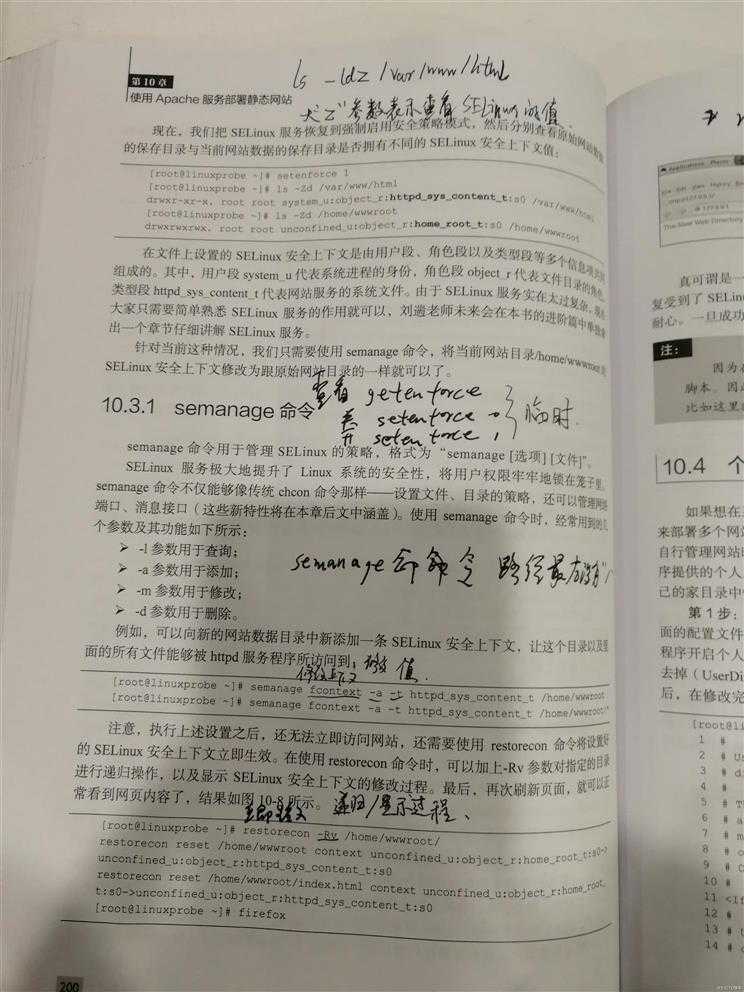 第10章
ls -ldZ /var/www/html
使用 Apache 服务部署静态网站
大"Z"参数表示查看 SELinux 的值.
现在，我们把 SELinux 服务恢复到强制启用安全策略模式，然后分别查看原始网站数据
的保存目录与当前网站数据的保存目录是否拥有不同的 SELinux 安全上下文值：
[root@linuxprobe ~]# setenforce 1
[root@linuxprobe ~]# ls -Zd /var/www/html
drwxr-xr-x. root root system_u:object_r:httpd_sys_content_t:s0 /var/www/html
[root@linuxprobe ~]# ls -Zd /home/wwwroot
drwxrwxrwx. root root unconfined_u:object_r:home_root_t:s0 /home/wwwroot
在文件上设置的 SELinux 安全上下文是由用户段、角色段以及类型段等多个信息项共同
组成的。其中，用户段 system_u 代表系统进程的身份，角色段 object_r 代表文件目录的角色，
类型段 httpd_sys_content_t 代表网站服务的系统文件。由于 SELinux 服务实在太过复杂，现在
大家只需要简单熟悉 SELinux 服务的作用就可以，刘遄老师未来会在本书的进阶篇中单独拿
出一个章节仔细讲解 SELinux 服务。
针对当前这种情况，我们只需要使用 semanage 命令，将当前网站目录/home/wwwroot 的
SELinux 安全上下文修改为跟原始网站目录的一样就可以了。
查看 getenforce
10.3.1 semanage 命令
关 setenforce 0
开 setenforce 1
临时.
semanage 命令用于管理 SELinux 的策略，格式为“semanage [选项] [文件]”。
SELinux 服务极大地提升了 Linux 系统的安全性，将用户权限牢牢地锁在笼子里。
semanage 命令不仅能够像传统 chcon 命令那样——设置文件、目录的策略，还可以管理网络
端口、消息接口（这些新特性将在本章后文中涵盖）。使用 semanage 命令时，经常用到的几
个参数及其功能如下所示：
➢ -l 参数用于查询；
➢ -a 参数用于添加；
➢ -m 参数用于修改；
➢ -d 参数用于删除。
semanage 命令 路径最后
例如，可以向新的网站数据目录中新添加一条 SELinux 安全上下文，让这个目录以及里
面的所有文件能够被 httpd 服务程序所访问到：
值.
[root@linuxprobe ~]# semanage fcontext -a -t httpd_sys_content_t /home/wwwroot
[root@linuxprobe ~]# semanage fcontext -a -t httpd_sys_content_t /home/wwwroot/*
注意，执行上述设置之后，还无法立即访问网站，还需要使用 restorecon 命令将设置好
的 SELinux 安全上下文立即生效。在使用 restorecon 命令时，可以加上-Rv 参数对指定的目录
进行递归操作，以及显示 SELinux 安全上下文的修改过程。最后，再次刷新页面，就可以正
常看到网页内容了，结果如图 10-8 所示。
递归/显示过程、
[root@linuxprobe ~]# restorecon -Rv /home/wwwroot/
restorecon reset /home/wwwroot context unconfined_u:object_r:home_root_t:s0->
unconfined_u:object_r:httpd_sys_content_t:s0
restorecon reset /home/wwwroot/index.html context unconfined_u:object_r:home_root_
t:s0->unconfined_u:object_r:httpd_sys_content_t:s0
[root@linuxprobe ~]# firefox
200
Applications Places
真可谓是一
复受到了 SELin
耐心。一旦成功
注：
因为在
脚本。因此
比如这里的
10.4 个
如果想在
来部署多个网站
自行管理网站
序提供的个人
己的家目录中
第 1 步：
面的配置文件
程序开启个人
去掉（UserDi
后，在修改完
[root@li
1 #
2 # U
3 # d
4 #
5 # T
6 # a
7 # m
8 # o
9 # C
10 #
11 <If
12 #
13 #
14 #